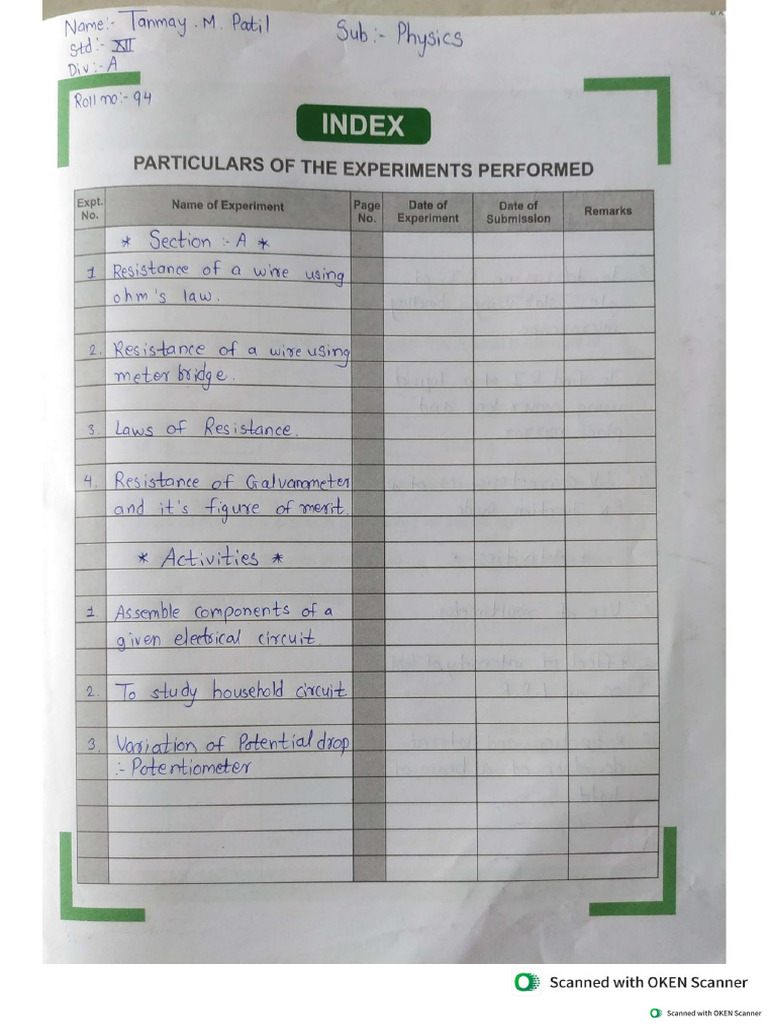 Name:- Tanmay . M. Patil
Sub:- Physics
Std:- XII
Div:- A
Roll no:- 94
INDEX
PARTICULARS OF THE EXPERIMENTS PERFORMED
Expt. No. Name of Experiment Page No. Date of Experiment Date of Submission Remarks
* Section :- A *
1 Resistance of a wire using
ohm's law.
2. Resistance of a wire using
meter bridge.
3. Laws of Resistance.
4. Resistance of Galvanometer
and it's figure of merit.
* Activities *
1 Assemble components of a
given electrical circuit.
2. To study household circuit
3. Variation of Potential drop
:- Potentiometer
Scanned with OKEN Scanner
Scanned with OKEN Scanner